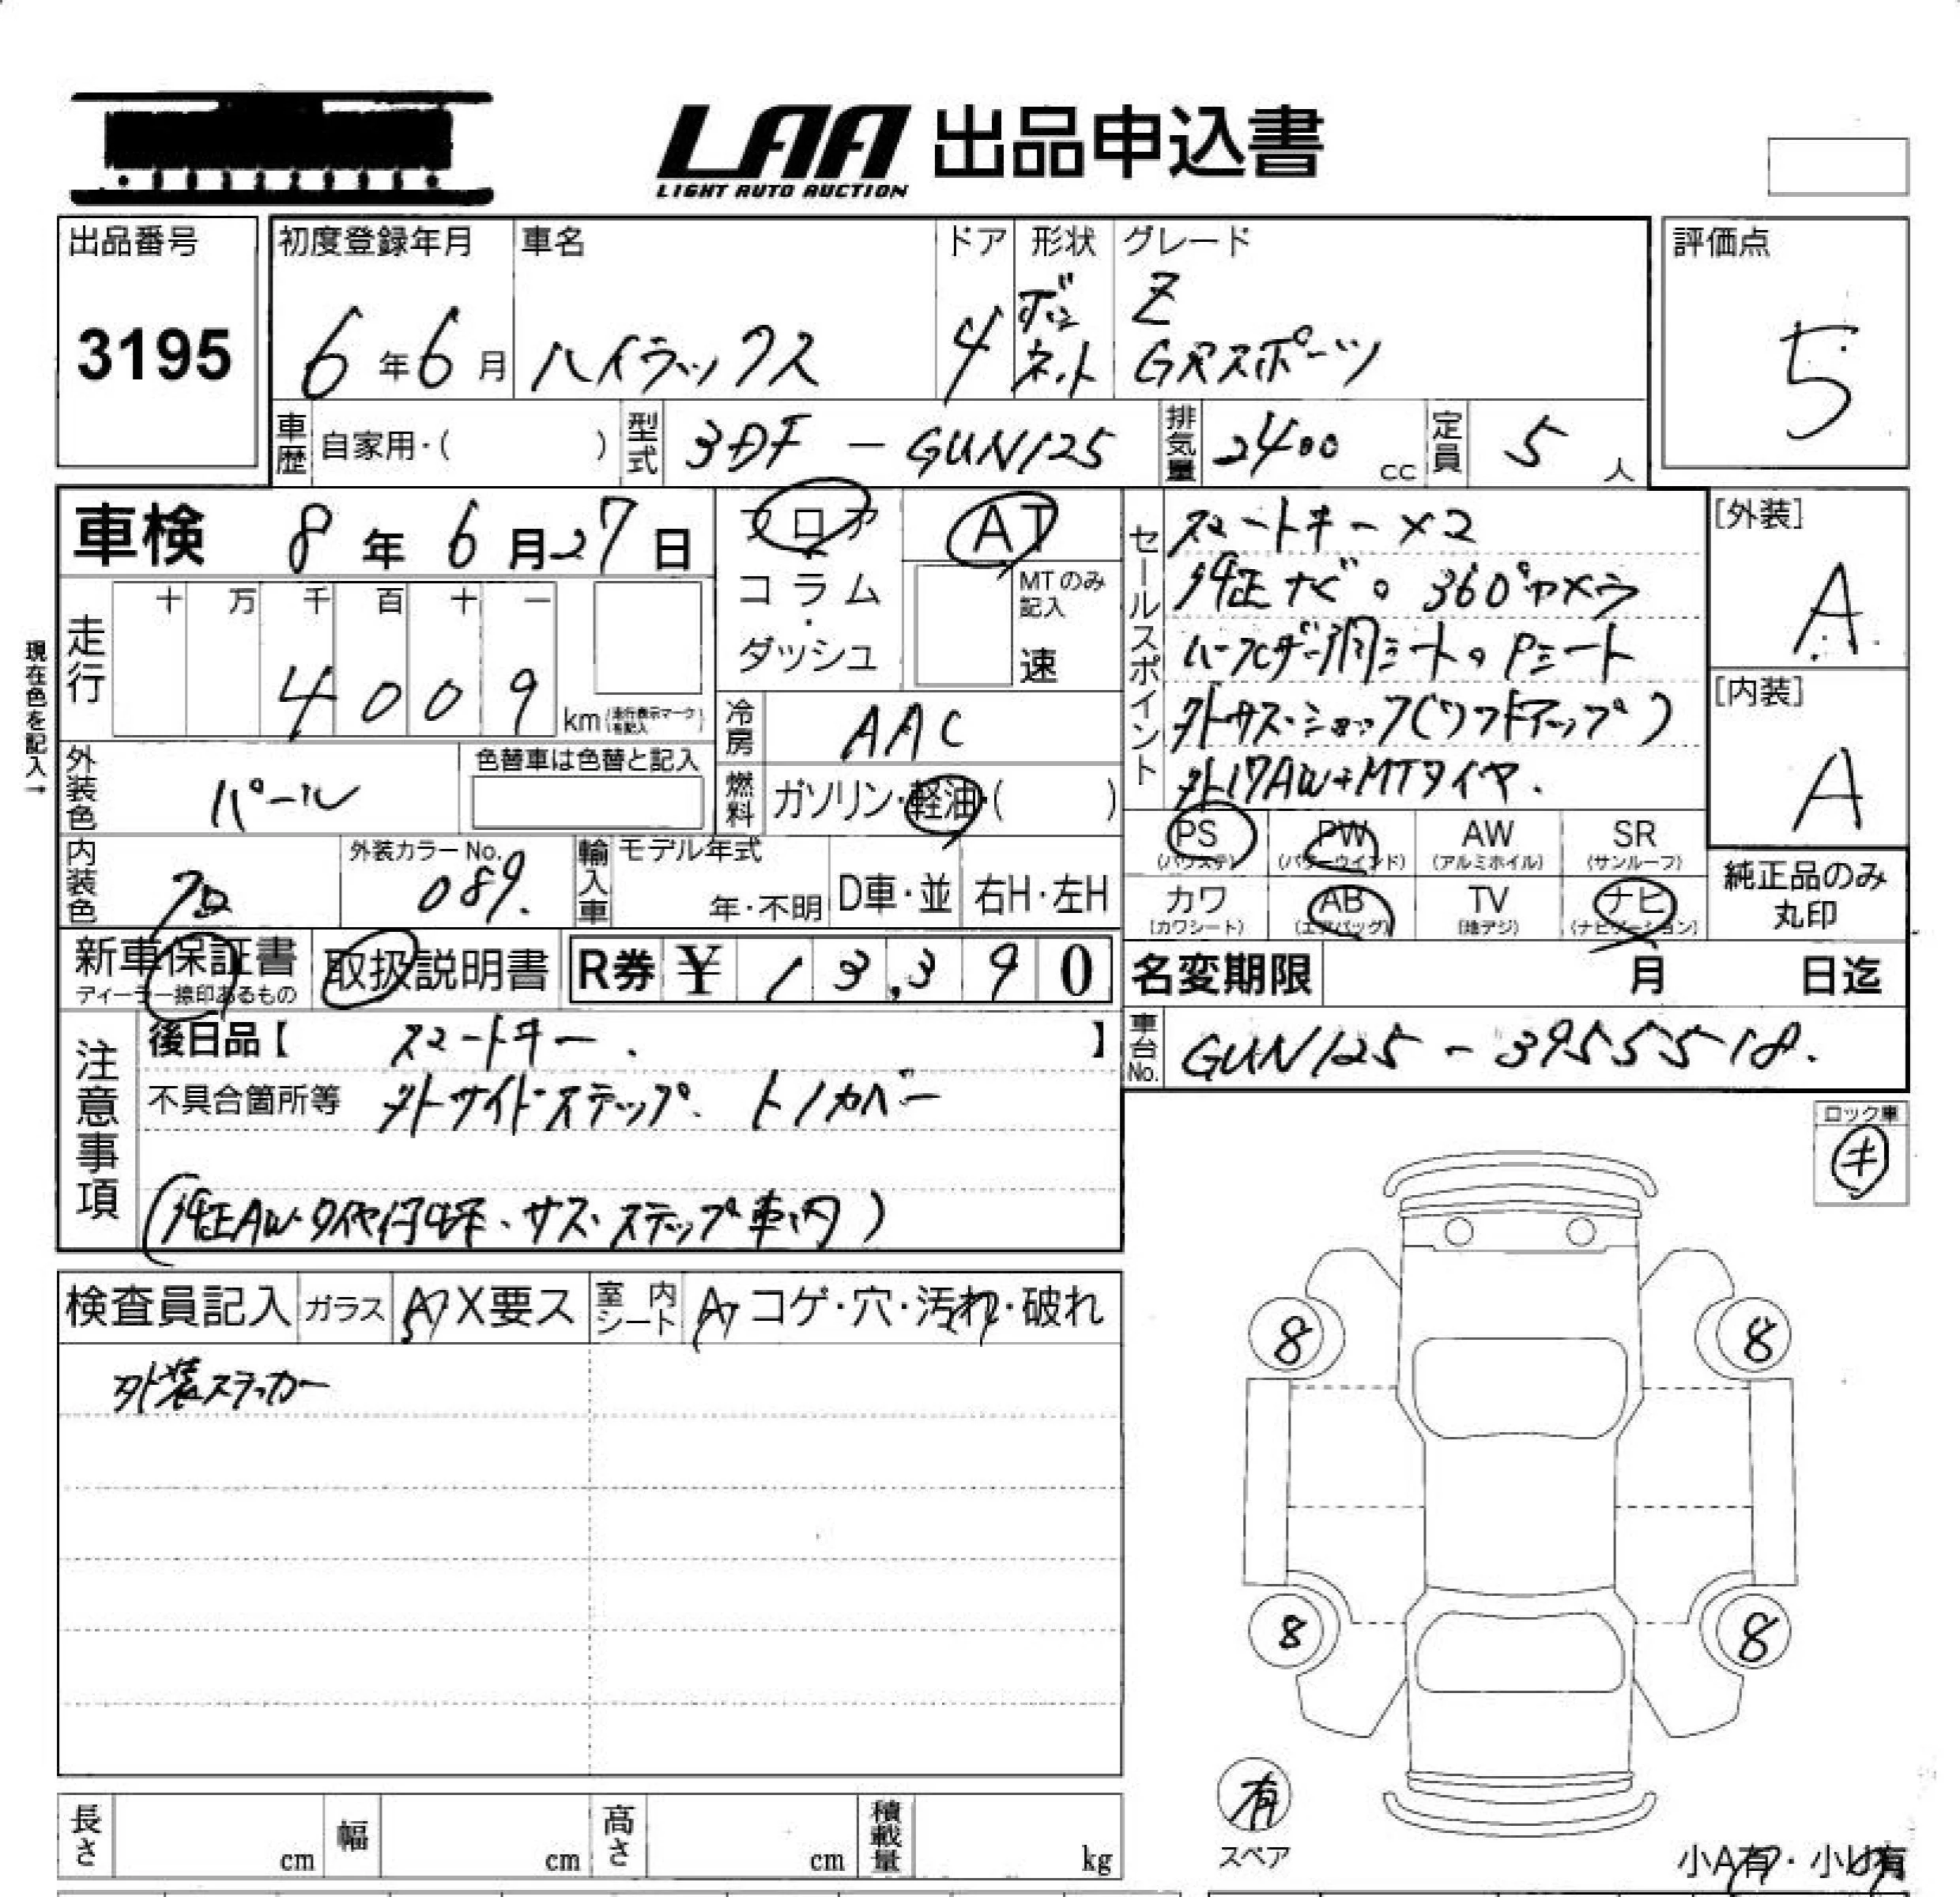 LAA 出品申込書
LIGHT AUTO AUCTION
出品番号
3195
初度登録年月
6年6月
車名
ハイラックス
ドア
4
形状
ボンネット
グレード
Z
GRスポーツ
評価点
5
車歴
自家用・( )
型式
3DF-GUN125
排気量
2400 cc
定員
5 人
車検 8年6月27日
フロア
コラム
・
ダッシュ
AT
MTのみ記入
速
現在色を記入→
走行
十 万 千 百 十 一
4 0 0 9
km (走行表示マークを記入)
冷房
AAC
外装色
パール
色替車は色替と記入
燃料
ガソリン・軽油・( )
内装色
クロ
外装カラーNo.
089.
輸入車
モデル年式
年・不明
D車・並
右H・左H
新車保証書
ディーラー捺印あるもの
取扱説明書
R券 ¥13,390
セールスポイント
スマートキー×2
純正ナビ。360°カメラ
ハーフレザー調シート。Pシート
外サス・ショック(リフトアップ)
外17AW+MTタイヤ.
[外装]
A
[内装]
A
PS
(パワステ)
PW
(パワーウインド)
AW
(アルミホイル)
SR
(サンルーフ)
カワ
(カワシート)
AB
(エアバッグ)
TV
(地デジ)
ナビ
(ナビゲーション)
純正品のみ
丸印
名変期限 月 日迄
車台No.
GUN125-3955518.
注意事項
後日品【 スマートキー. 】
不具合箇所等 外サイドステップ. トノカバー
(純正AW・タイヤ サス・ステップ車内)
ロック車
キ
検査員記入
ガラス
A X要ス
室内シート
A コゲ・穴・汚れ・破れ
外装ステッカー
8
8
8
8
有
スペア
長さ cm
幅 cm
高さ cm
積載量 kg
小A有・小U有